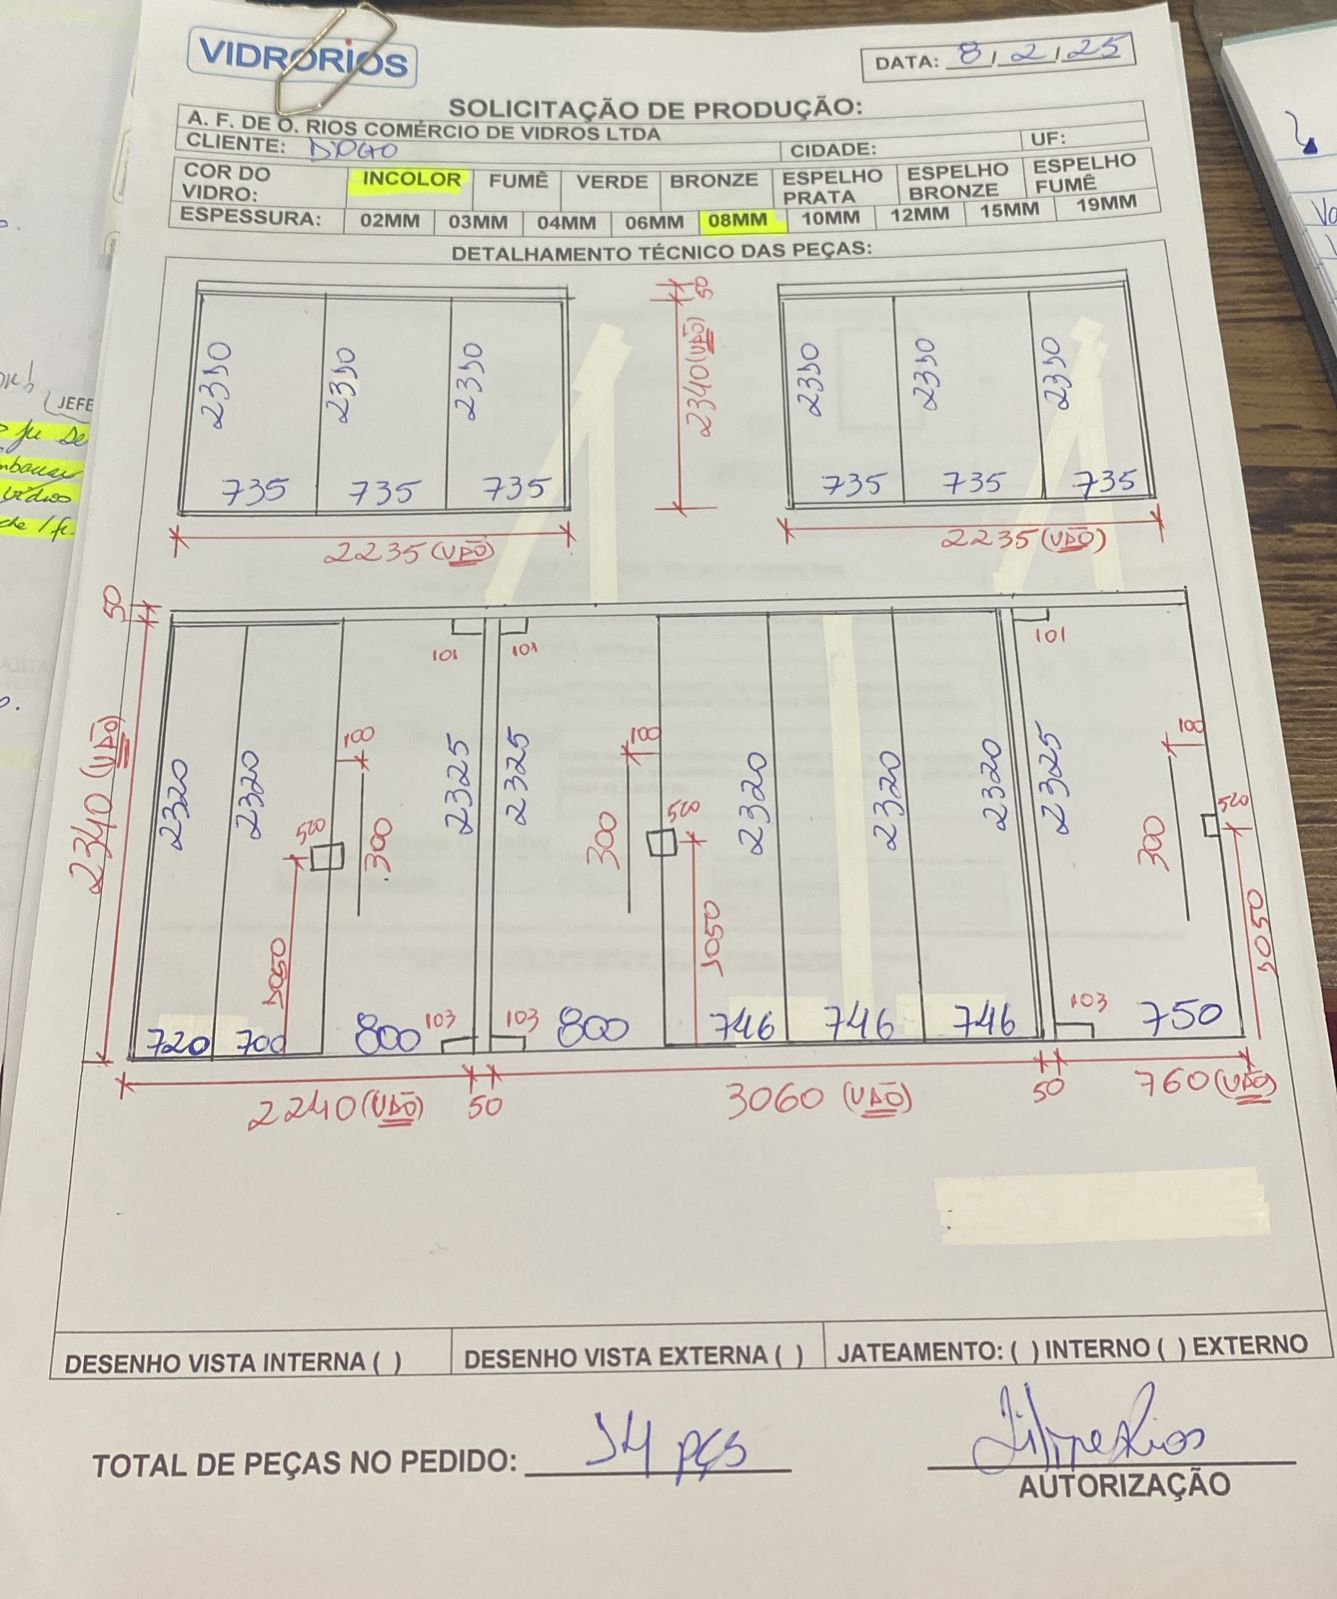 VIDRORIOS
DATA: 8/2/25
SOLICITAÇÃO DE PRODUÇÃO:
A. F. DE O. RIOS COMÉRCIO DE VIDROS LTDA
CLIENTE: DIOGO CIDADE: UF:
COR DO VIDRO: INCOLOR FUMÊ VERDE BRONZE ESPELHO PRATA ESPELHO BRONZE ESPELHO FUMÊ
ESPESSURA: 02MM 03MM 04MM 06MM 08MM 10MM 12MM 15MM 19MM
DETALHAMENTO TÉCNICO DAS PEÇAS:
50
2340 (VÃO)
2350 2350 2350 2350 2350 2350
735 735 735 735 735 735
2235 (VÃO) 2235 (VÃO)
JEFE
50
101 101 101
2340 (VÃO)
100 100 100
2320 2320 2325 2325 2320 2320 2320 2325
520 300 300 520 300 520
1050 1050 1050
720 700 800 103 103 800 746 746 746 103 750
2240 (VÃO) 50 3060 (VÃO) 50 760 (VÃO)
DESENHO VISTA INTERNA ( ) DESENHO VISTA EXTERNA ( ) JATEAMENTO: ( ) INTERNO ( ) EXTERNO
TOTAL DE PEÇAS NO PEDIDO: 14 pçs
Filipe Rios
AUTORIZAÇÃO